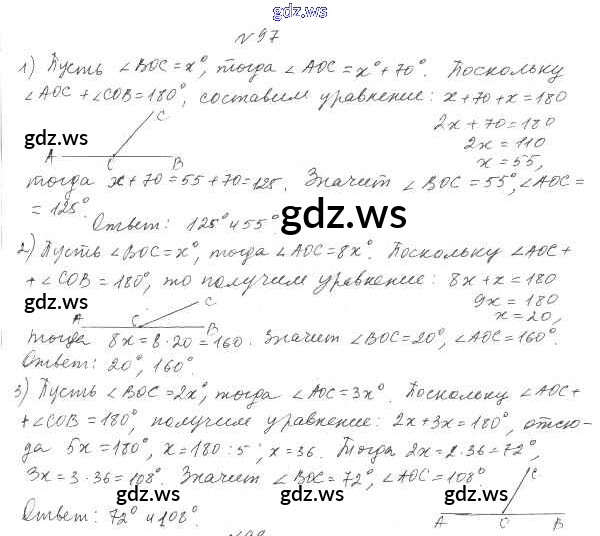 gdz.ws
№97
1) Пусть ∠BOC = x°, тогда ∠AOC = x° + 70°. Поскольку
∠AOC + ∠COB = 180°, составим уравнение: x + 70 + x = 180
gdz.ws
C
2x + 70 = 180
2x = 110
A C B
x = 55,
тогда x + 70 = 55 + 70 = 125. Значит ∠BOC = 55°, ∠AOC =
= 125°.
gdz.ws
Ответ: 125° и 55°.
2) Пусть ∠BOC = x°, тогда ∠AOC = 8x°. Поскольку ∠AOC +
+ ∠COB = 180°, то получим уравнение: 8x + x = 180
gdz.ws
C
9x = 180
gdz.ws
A C B
x = 20,
тогда 8x = 8 · 20 = 160. Значит ∠BOC = 20°, ∠AOC = 160°.
Ответ: 20°, 160°.
3) Пусть ∠BOC = 2x°, тогда ∠AOC = 3x°. Поскольку ∠AOC +
+ ∠COB = 180°, получим уравнение: 2x + 3x = 180°, отсю-
да 5x = 180°, x = 180 : 5; x = 36. Тогда 2x = 2 · 36 = 72°,
3x = 3 · 36 = 108°. Значит ∠BOC = 72°, ∠AOC = 108°.
C
gdz.ws
gdz.ws
Ответ: 72° и 108°.
A O B